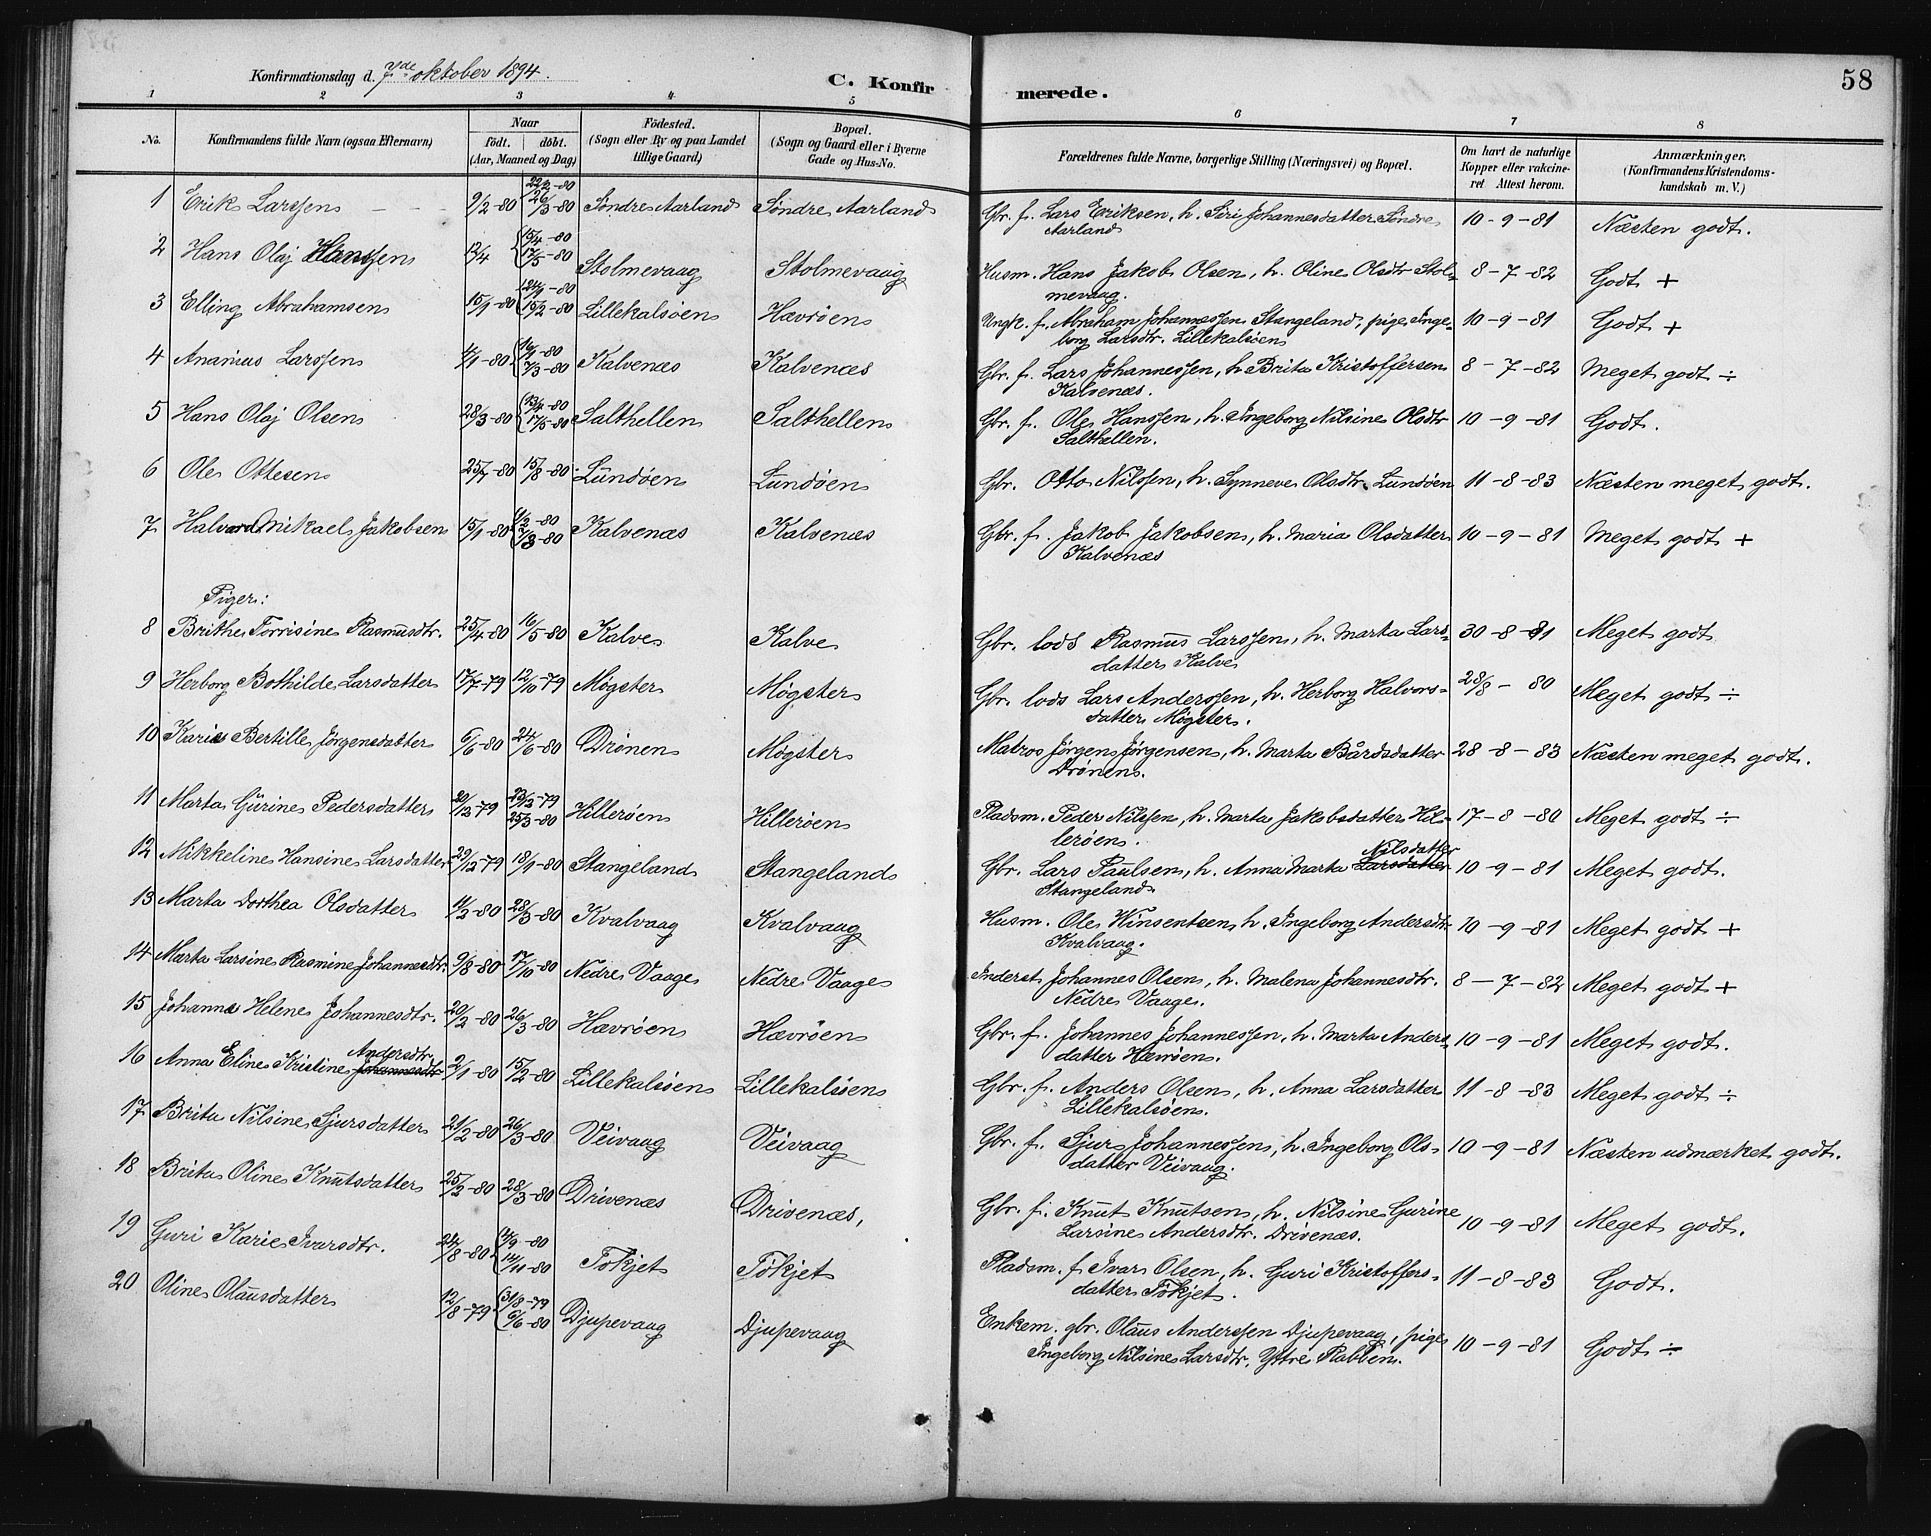 58
Konfirmationsdag d. 7de oktober 1894.
C. Konfirmerede.
1 2 3 4 5 6 7 8
No. Konfirmandens fulde Navn (ogsaa Efternavn) Naar født. døbt. (Aar, Maaned og Dag) Fødested. (Sogn eller By og paa Landet tillige Gaard) Bopæl. (Sogn og Gaard eller i Byerne Gade og Hus-No. Forældrenes fulde Navne, borgerlige Stilling (Næringsvei) og Bopæl. Om havt de naturlige Kopper eller vakcineret Attest herom. Anmærkninger. (Konfirmandens Kristendomskundskab m. V.)
1 Erik Larssen 9/2-80 22/2-80 26/3-80 Søndre Aarland Søndre Aarland Gbr. f. Lars Eriksen, h. Siri Johannesdatter Søndre Aarland 10-9-81 Næsten godt.
2 Hans Olaj Hanssen 12/4 15/4-80 17/5-80 Stolmevaag Stolmevaag Husm. Hans Jakob Olsen, h. Oline Olsdtr Stolmevaag. 8-7-82 Godt +
3 Elling Abrahamsen 15/1-80 24/1-80 15/2-80 Lillekalsøen Hævrøen Ungk. f. Abraham Johannessen Stangeland, pige Ingeborg Larsdtr. Lillekalsøen 10-9-81 Godt +
4 Ananias Larssen 4/1-80 16/1-80 7/3-80 Kalvenæs Kalvenæs Gbr. f. Lars Johannessen, h Brita Kristoffersen Kalvenæs. 8-7-82 Meget godt ÷
5 Hans Olaj Olsen 28/3-80 13/4-80 17/5-80 Salthellen Salthellen Gbr. f. Ole Hanssen, h. Ingeborg Nilsine Olsdtr Salthellen. 10-9-81 Godt.
6 Ole Ottesen 25/7-80 15/8-80 Lundøen Lundøen Gbr. Otto Nilssen, h. Synneve Olsdtr. Lundøen 11-8-83 Næsten meget godt.
7 Halvard Mikael Jakobsen 15/1-80 1/2-80 2/3-80 Kalvenæs Kalvenæs Gbr. f. Jakob Jakobsen, h. Maria Olsdatter Kalvenæs 10-9-81 Meget godt +
Piger:
8 Brithe Torrisine Rasmusdtr. 25/4-80 16/5-80 Kalve Kalve Gbr. lods Rasmus Larssen, h. Marta Larsdatter Kalve 30-8-81 Meget godt
9 Herborg Bothilde Larsdatter 17/7-79 12/10-79 Møgster Møgster Gbr. lods Lars Anderssen, h. Herborg Halvorsdatter Møgster. 28/8-80 Meget godt ÷
10 Karie Bertille Jørgensdatter 6/6-80 24/6-80 Drønen Møgster Matros Jørgen Jørgensen, h. Marta Bårdsdatter Drønen. 28-8-83 Næsten meget godt.
11 Marta Gurine Pedersdatter 20/12-79 23/12-79 25/3-80 Hillerøen Hillerøen Pladsm. Peder Nilssen, h. Marta Jakobsdatter Hillerøen. 17-8-80 Meget godt ÷
12 Mikkeline Hansine Larsdatter 29/12-79 18/1-80 Stangeland Stangeland Gbr. Lars Paulsen, h. Anna Marta Larsdatter Nilsdatter Stangeland 10-9-81 Meget godt.
13 Marta Dorthea Olsdatter 11/2-80 28/3-80 Kvalvaag Kvalvaag Husm. Ole Winsentsen, h. Ingeborg Andersdtr Kvalvaag. 10-9-81 Meget godt +
14 Marta Larsine Rasmine Johannesdtr. 9/8-80 17/10-80 Nedre Vaage Nedre Vaage Inderst Johannes Olsen, h. Malena Johannesdtr. Nedre Vaage. 8-7-82 Meget godt +
15 Johanna Helene Johannesdtr. 20/2-80 26/3-80 Hævrøen Hævrøen Gbr. f. Johannes Johannessen, h. Marta Andersdatter Hævrøen. 10-9-81 Meget godt.
16 Anna Eline Kristine Johannesdtr Andersdtr. 2/1-80 15/2-80 Lillekalsøen Lillekalsøen Gbr. f. Anders Olsen, h. Anna Larsdatter Lillekalsøen. 11-8-83 Meget godt ÷
17 Brita Nilsine Sjursdatter 21/2-80 26/3-80 Veivaag Veivaag Gbr. f. Sjur Johannessen, h. Ingeborg Olsdatter Veivaag. 10-9-81 Næsten udmærket godt.
18 Brita Oline Knutsdatter 25/2-80 28/3-80 Drivenæs Drivenæs, Gbr. f. Knut Knutsen, h. Nilsine Gurine Larsine Andersdtr. Drivenæs. 10-9-81 Meget godt.
19 Guri Karie Ivarsdtr. 24/8-80 4/9-80 14/11-80 Tøkjet Tøkjet Pladsm. f. Ivar Olsen, h. Guri Kristoffersdatter Tøkjet. 11-8-83 Godt.
20 Oline Olausdatter 12/8-79 31/8-79 6/6-80 Djupevaag Djupevaag Enkem. gbr. Olaus Anderssen Djupevaag, pige Ingeborg Nilsine Larsdtr. Yttre Rabben. 10-9-81 Godt ÷